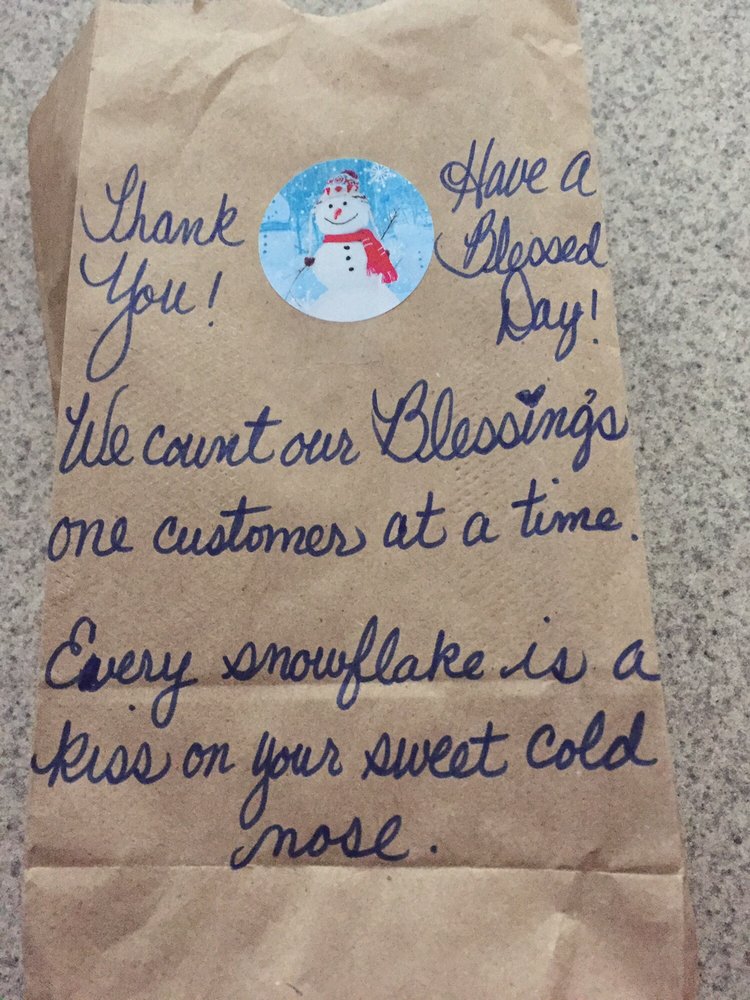 Thank
You!
Have A
Blessed
Day!
We count our Blessings
one customer at a time.
Every snowflake is a
kiss on your sweet cold
nose.